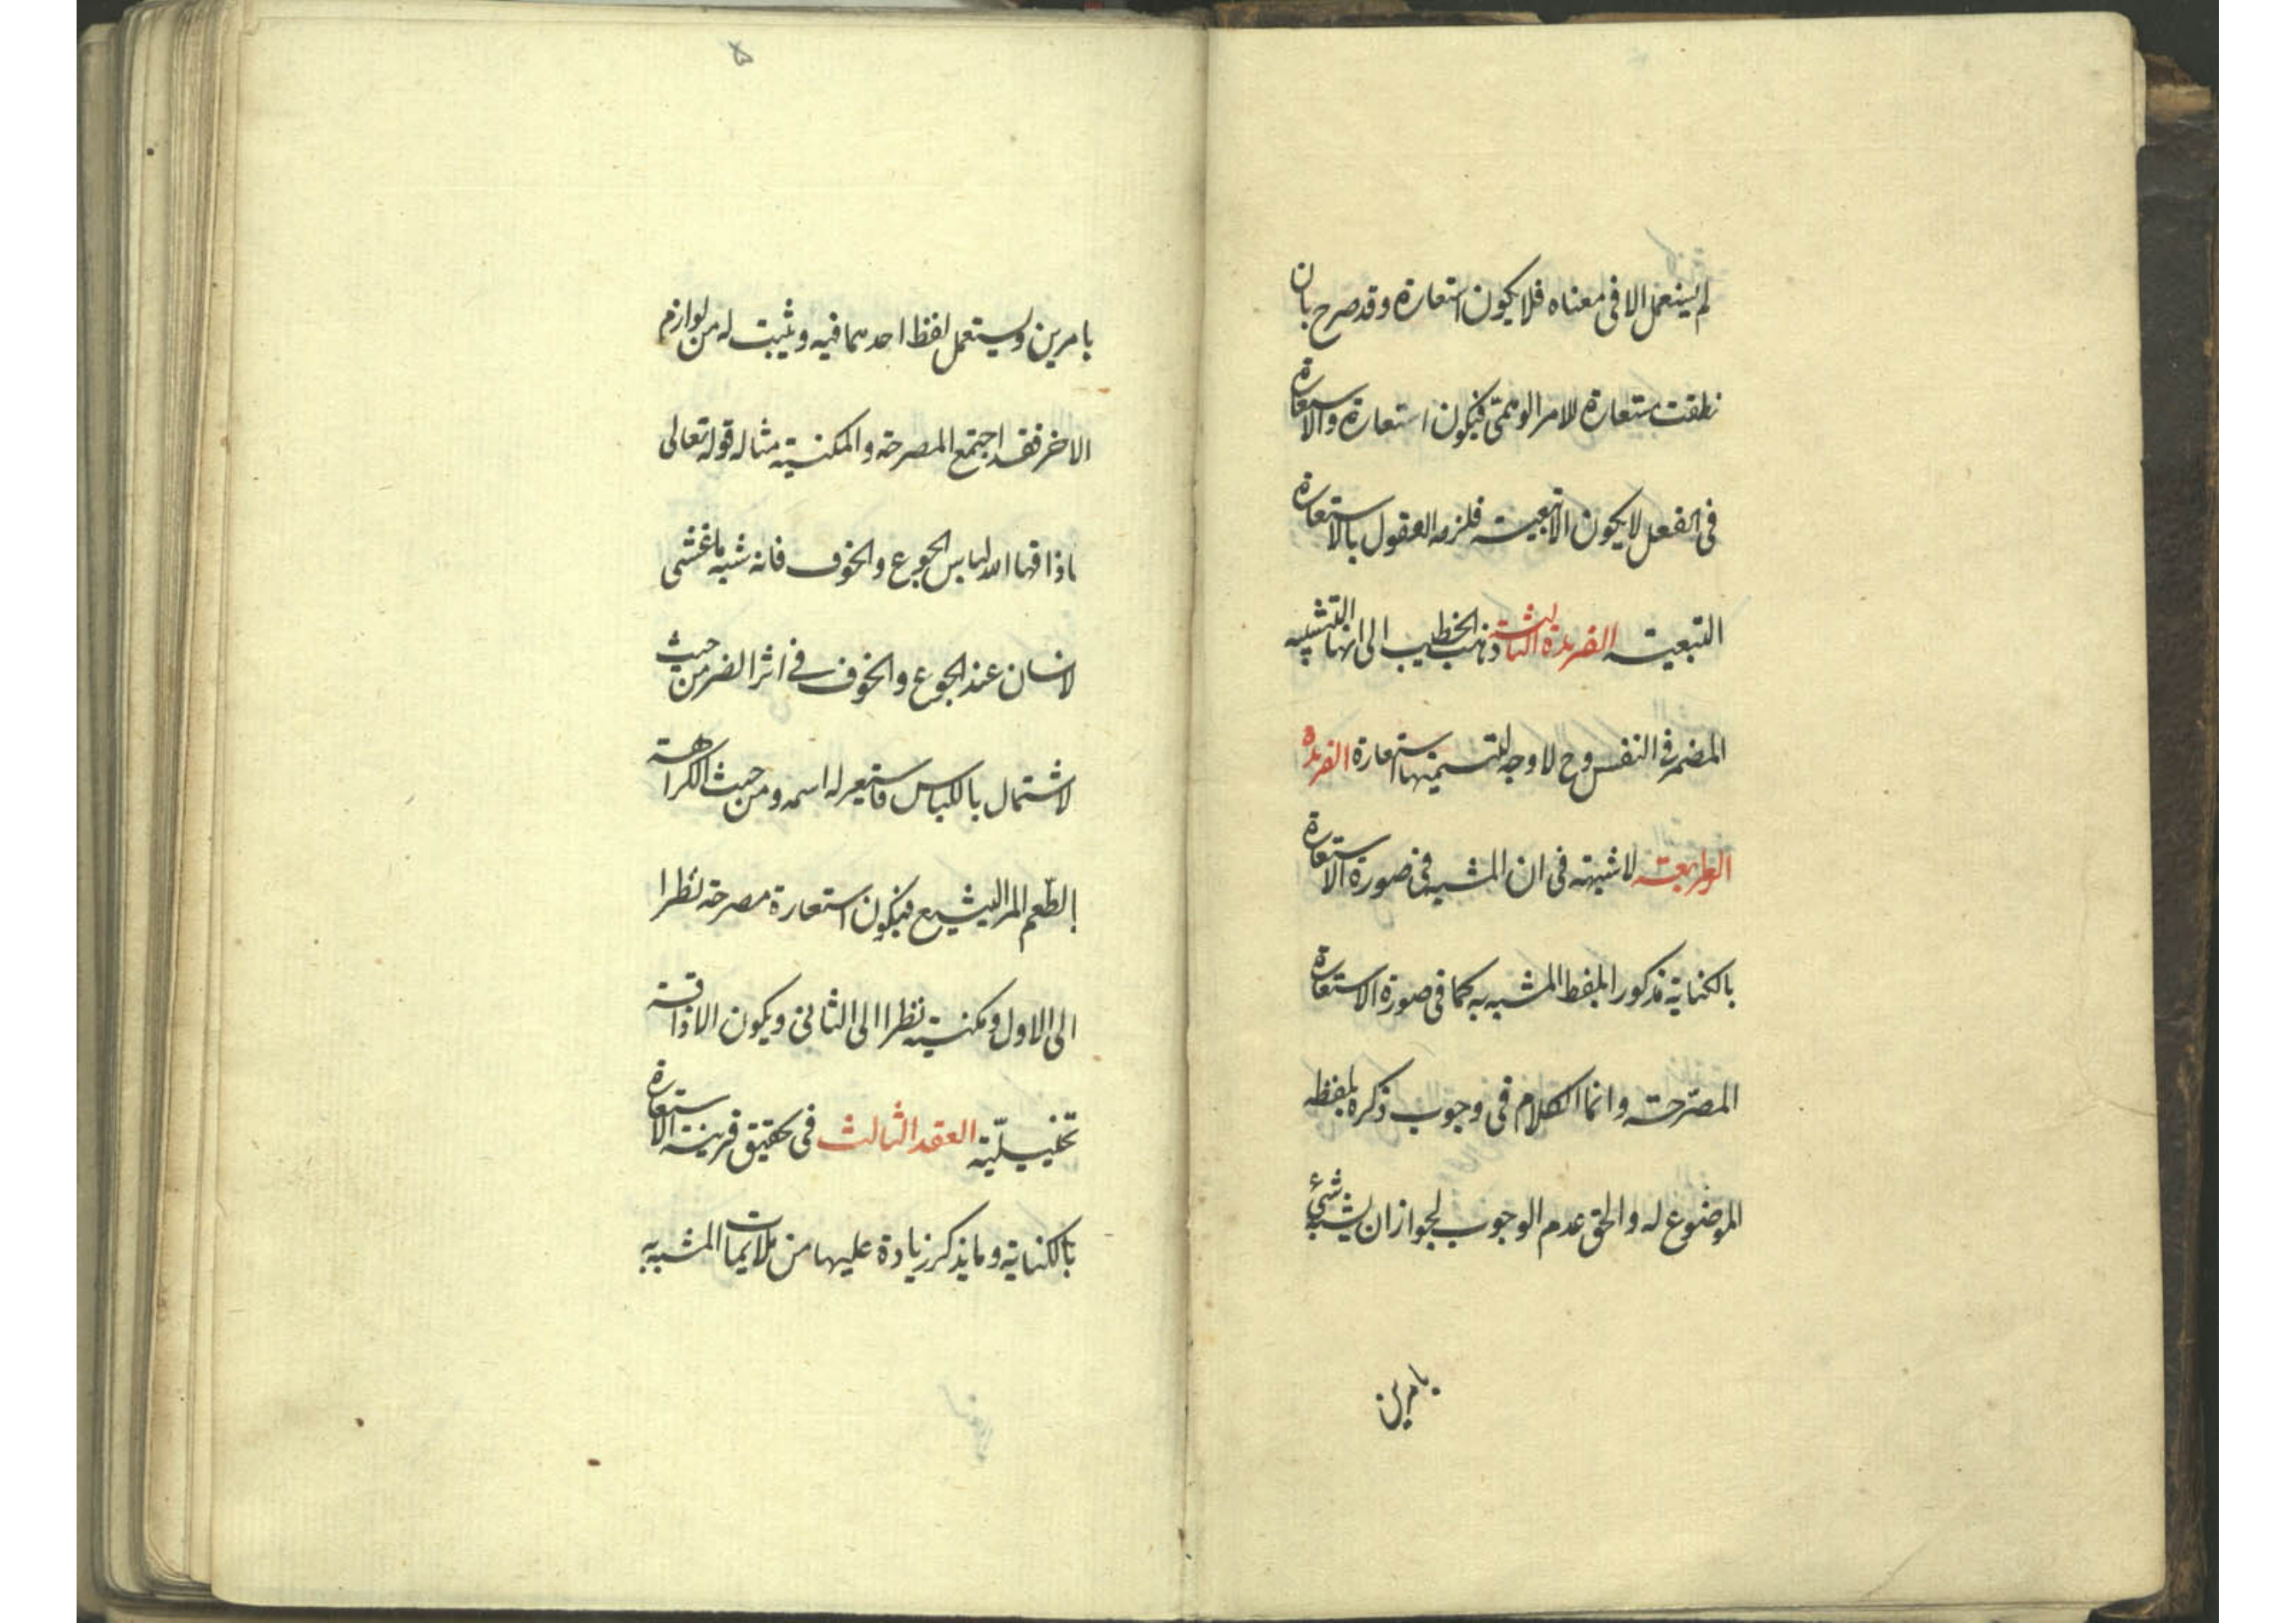 لم يستعمل الا فى معناه فلا يكون استعارة وقد صرح بان
نطقت مستعارة للامر الوهمى فيكون استعارة والاستعارة
فى الفعل لا يكون الا تبعية فلزمه القول بالاستعارة
التبعية الفريدة الثالثة ذهب الخطيب الى انها التشبيه
المضمر فى النفس وح لا وجه لتسميتها استعارة الفريدة
الرابعة لا شبهة فى ان المشبه فى صورة الاستعارة
بالكناية مذكور بلفظ المشبه به كما فى صورة الاستعارة
المصرّحة وانما الكلام فى وجوب ذكره بلفظه
الموضوع له والحق عدم الوجوب لجواز ان يشبه شئ
بامرين
۵
بامرين ويستعمل لفظ احدهما فيه ويثبت له من لوازم
الاخر فقد اجتمع المصرحة والمكنية مثاله قوله تعالى
فاذاقها الله لباس الجوع والخوف فانه شبه ما غشى
لانسان عند الجوع والخوف فى اثر الضر من حيث
لاشتمال باللباس فاستعير له اسمه ومن حيث الكراهة
بالطّعم المر البشيع فيكون استعارة مصرحة نظرا
الى الاول ومكنية نظرا الى الثانى ويكون الاذاقة
تخييليّة العقد الثالث فى تحقيق قرينة الاستعارة
بالكناية وما يذكر زيادة عليها من ملايمات المشبه به